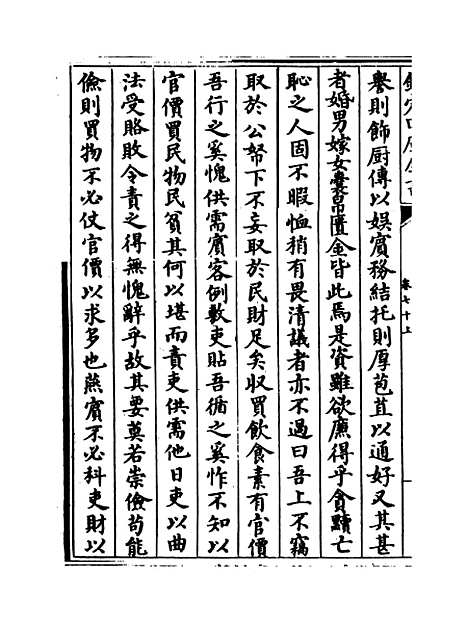 卷七十上
譽則飾厨傳以娱賓務結托則厚苞苴以通好又其甚
者婚男嫁女囊帛匱金皆此焉是資雖欲廉得乎貪黷亡
恥之人固不暇恤稍有畏清議者亦不過曰吾上不竊
取於公帑下不妄取於民財足矣収買飲食素有官價
吾行之奚愧供需賓客例數吏貼吾循之奚怍不知以
官價買民物民貧其何以堪而責吏供需他日吏以曲
法受賂敗令責之得無愧辭乎故其要莫若崇儉苟能
儉則買物不必仗官價以求多也燕賓不必科吏財以